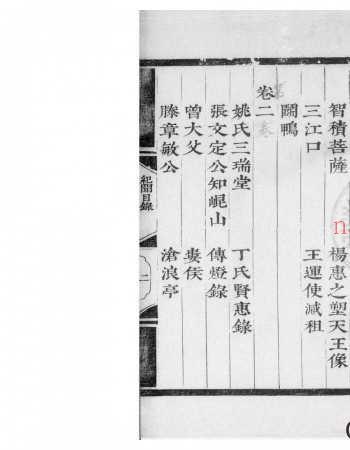 智積菩薩　楊惠之塑天王像
三江口　王運使減租
鬭鴨
卷二
姚氏三瑞堂　丁氏賢惠錄
張文定公知崐山　傳燈錄
曾大父　婁侯
滕章敏公　滄浪亭
紀聞目錄
二